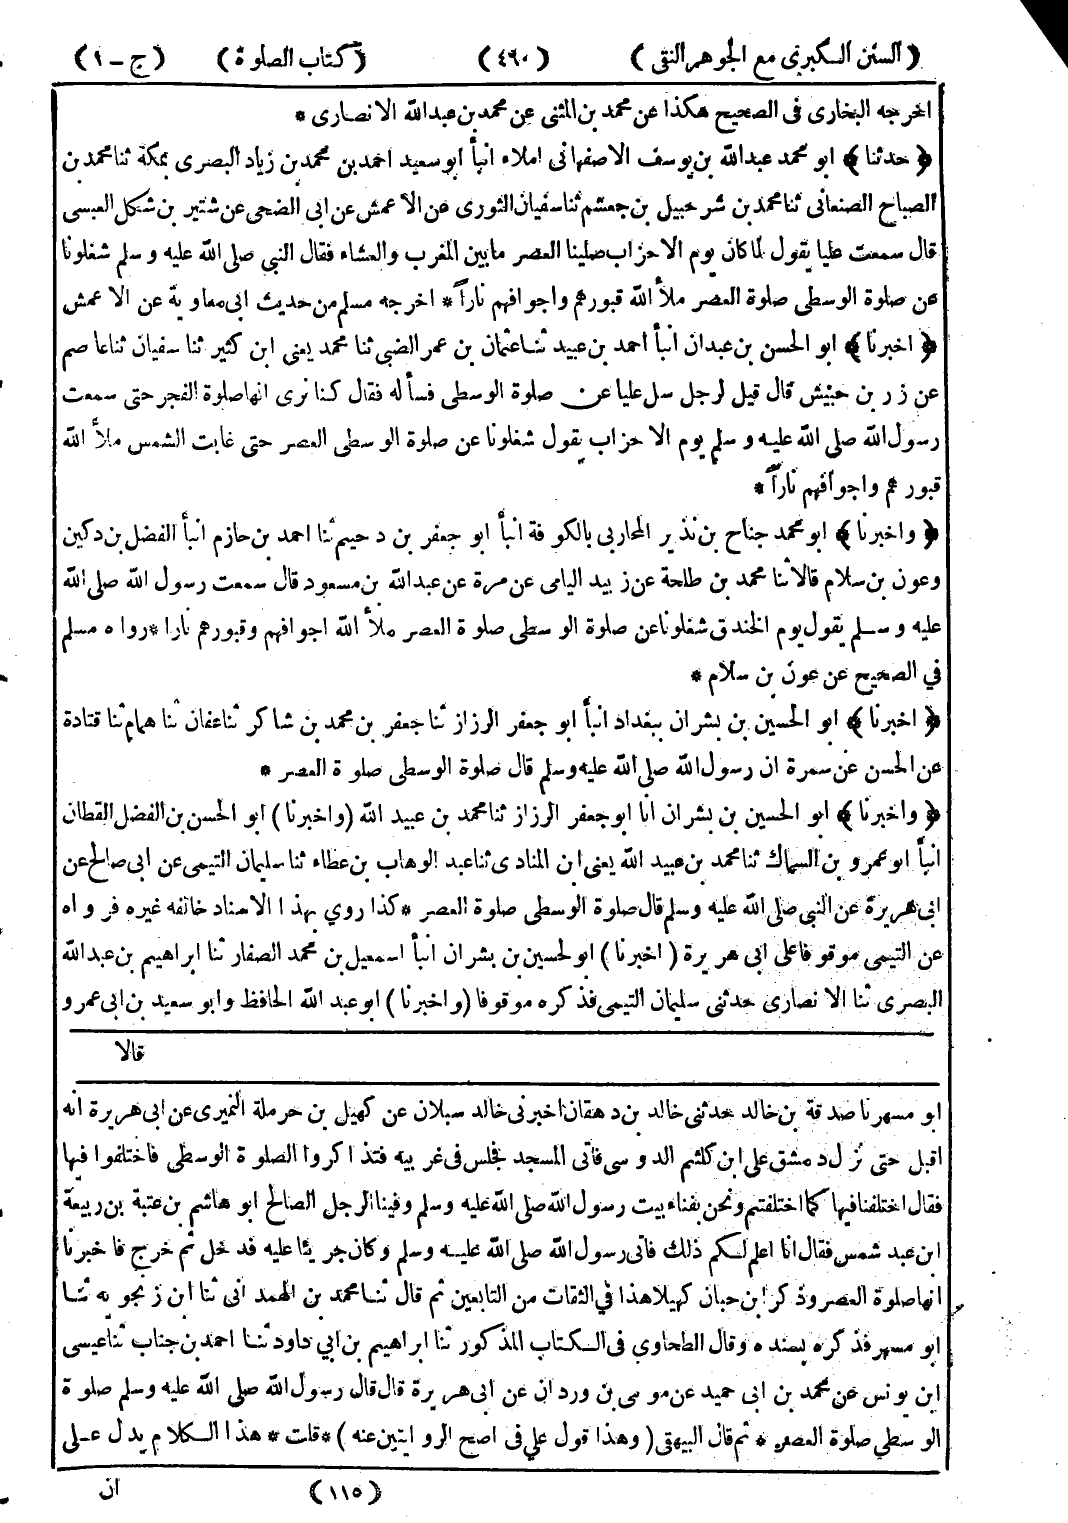 (السنن الكبرى مع الجوهر النقى) (٤٦٠) (كتاب الصلوة) (ج-١)
اخرجه البخارى فى الصحيح هكذا عن محمد بن المثنى عن محمد بن عبدالله الانصارى *
﴿ حدثنا ﴾ ابو محمد عبدالله بن يوسف الاصفهانى املاء انبأ ابو سعيد احمد بن محمد بن زياد البصرى بمكة ثنا محمد بن
الصباح الصنعانى ثنا محمد بن شرحبيل بن جعشم ثنا سفيان الثورى عن الاعمش عن ابى الضحى عن شتير بن شكل العبسى
قال سمعت عليا يقول لما كان يوم الاحزاب صلينا العصر ما بين المغرب والعشاء فقال النبي صلى الله عليه وسلم شغلونا
عن صلوة الوسطى صلوة العصر ملأ الله قبورهم واجوافهم ناراً * اخرجه مسلم من حديث ابى معاوية عن الاعمش
﴿ اخبرنا ﴾ ابو الحسن بن عبدان انبأ احمد بن عبيد ثنا عثمان بن عمر الضبي ثنا محمد يعنى ابن كثير ثنا سفيان ثنا عاصم
عن زر بن حبيش قال قيل لرجل سل عليا عن صلوة الوسطى فسأله فقال كنا نرى انها صلوة الفجر حتى سمعت
رسول الله صلى الله عليه وسلم يوم الاحزاب يقول شغلونا عن صلوة الوسطى العصر حتى غابت الشمس ملأ الله
قبورهم واجوافهم ناراً *
﴿ واخبرنا ﴾ ابو محمد جناح بن نذير المحاربى بالكوفة انبأ ابو جعفر بن دحيم ثنا احمد بن حازم انبأ الفضل بن دكين
وعون بن سلام قالا ثنا محمد بن طلحة عن زبيد اليامى عن مرة عن عبدالله بن مسعود قال سمعت رسول الله صلى الله
عليه وسلم يقول يوم الخندق شغلونا عن صلوة الوسطى صلوة العصر ملأ الله اجوافهم وقبورهم نارا * رواه مسلم
في الصحيح عن عون بن سلام *
﴿ اخبرنا ﴾ ابو الحسين بن بشران ببغداد انبأ ابو جعفر الرزاز ثنا جعفر بن محمد بن شاكر ثنا عفان ثنا همام ثنا قتادة
عن الحسن عن سمرة ان رسول الله صلى الله عليه وسلم قال صلوة الوسطى صلوة العصر *
﴿ واخبرنا ﴾ ابو الحسين بن بشران انا ابو جعفر الرزاز ثنا محمد بن عبيد الله (واخبرنا) ابو الحسن بن الفضل القطان
انبأ ابو عمرو بن السماك ثنا محمد بن عبيد الله يعنى ابن المنادى ثنا عبد الوهاب بن عطاء ثنا سليمان التيمى عن ابى صالح عن
ابى هريرة عن النبي صلى الله عليه وسلم قال صلوة الوسطى صلوة العصر * كذا روي بهذا الاسناد خالفه غيره فرواه
عن التيمى موقوفا على ابى هريرة (اخبرنا) ابو لحسين بن بشران انبأ اسمعيل بن محمد الصفار ثنا ابراهيم بن عبدالله
البصرى ثنا الانصارى حدثنى سليمان التيمى فذكره موقوفا (واخبرنا) ابو عبد الله الحافظ وابو سعيد بن ابى عمرو
قالا
ابو مسهر نا صدقة بن خالد حدثنى خالد بن دهقان اخبرنى خالد سبلان عن كهيل بن حرملة النميرى عن ابى هريرة انه
اقبل حتى نزل دمشق على ابن كلثم الدوسى فاتى المسجد فجلس فى غربيه فتذاكروا الصلوة الوسطى فاختلفوا فيها
فقال اختلفنا فيها كما اختلفتم ونحن بفناء بيت رسول الله صلى الله عليه وسلم وفينا الرجل الصالح ابو هاشم بن عتبة بن ربيعة
ابن عبد شمس فقال انا اعلم لكم ذلك فاتى رسول الله صلى الله عليه وسلم وكان جريئا عليه فدخل ثم خرج فاخبرنا
انها صلوة العصر وذكر ابن حبان كهيلا هذا في الثقات من التابعين ثم قال ثنا محمد بن الهمدانى ثنا ابن زنجويه ثنا
ابو مسهر فذكره بسنده وقال الطحاوى فى الكتاب المذكور ثنا ابراهيم بن ابي داود ثنا احمد بن جناب ثنا عيسى
ابن يونس عن محمد بن ابى حميد عن موسى بن وردان عن ابى هريرة قال قال رسول الله صلى الله عليه وسلم صلوة
الوسطي صلوة العصر * ثم قال البيهقى (وهذا قول علي فى اصح الروايتين عنه) * قلت * هذا الكلام يدل على
(١١٥) ان